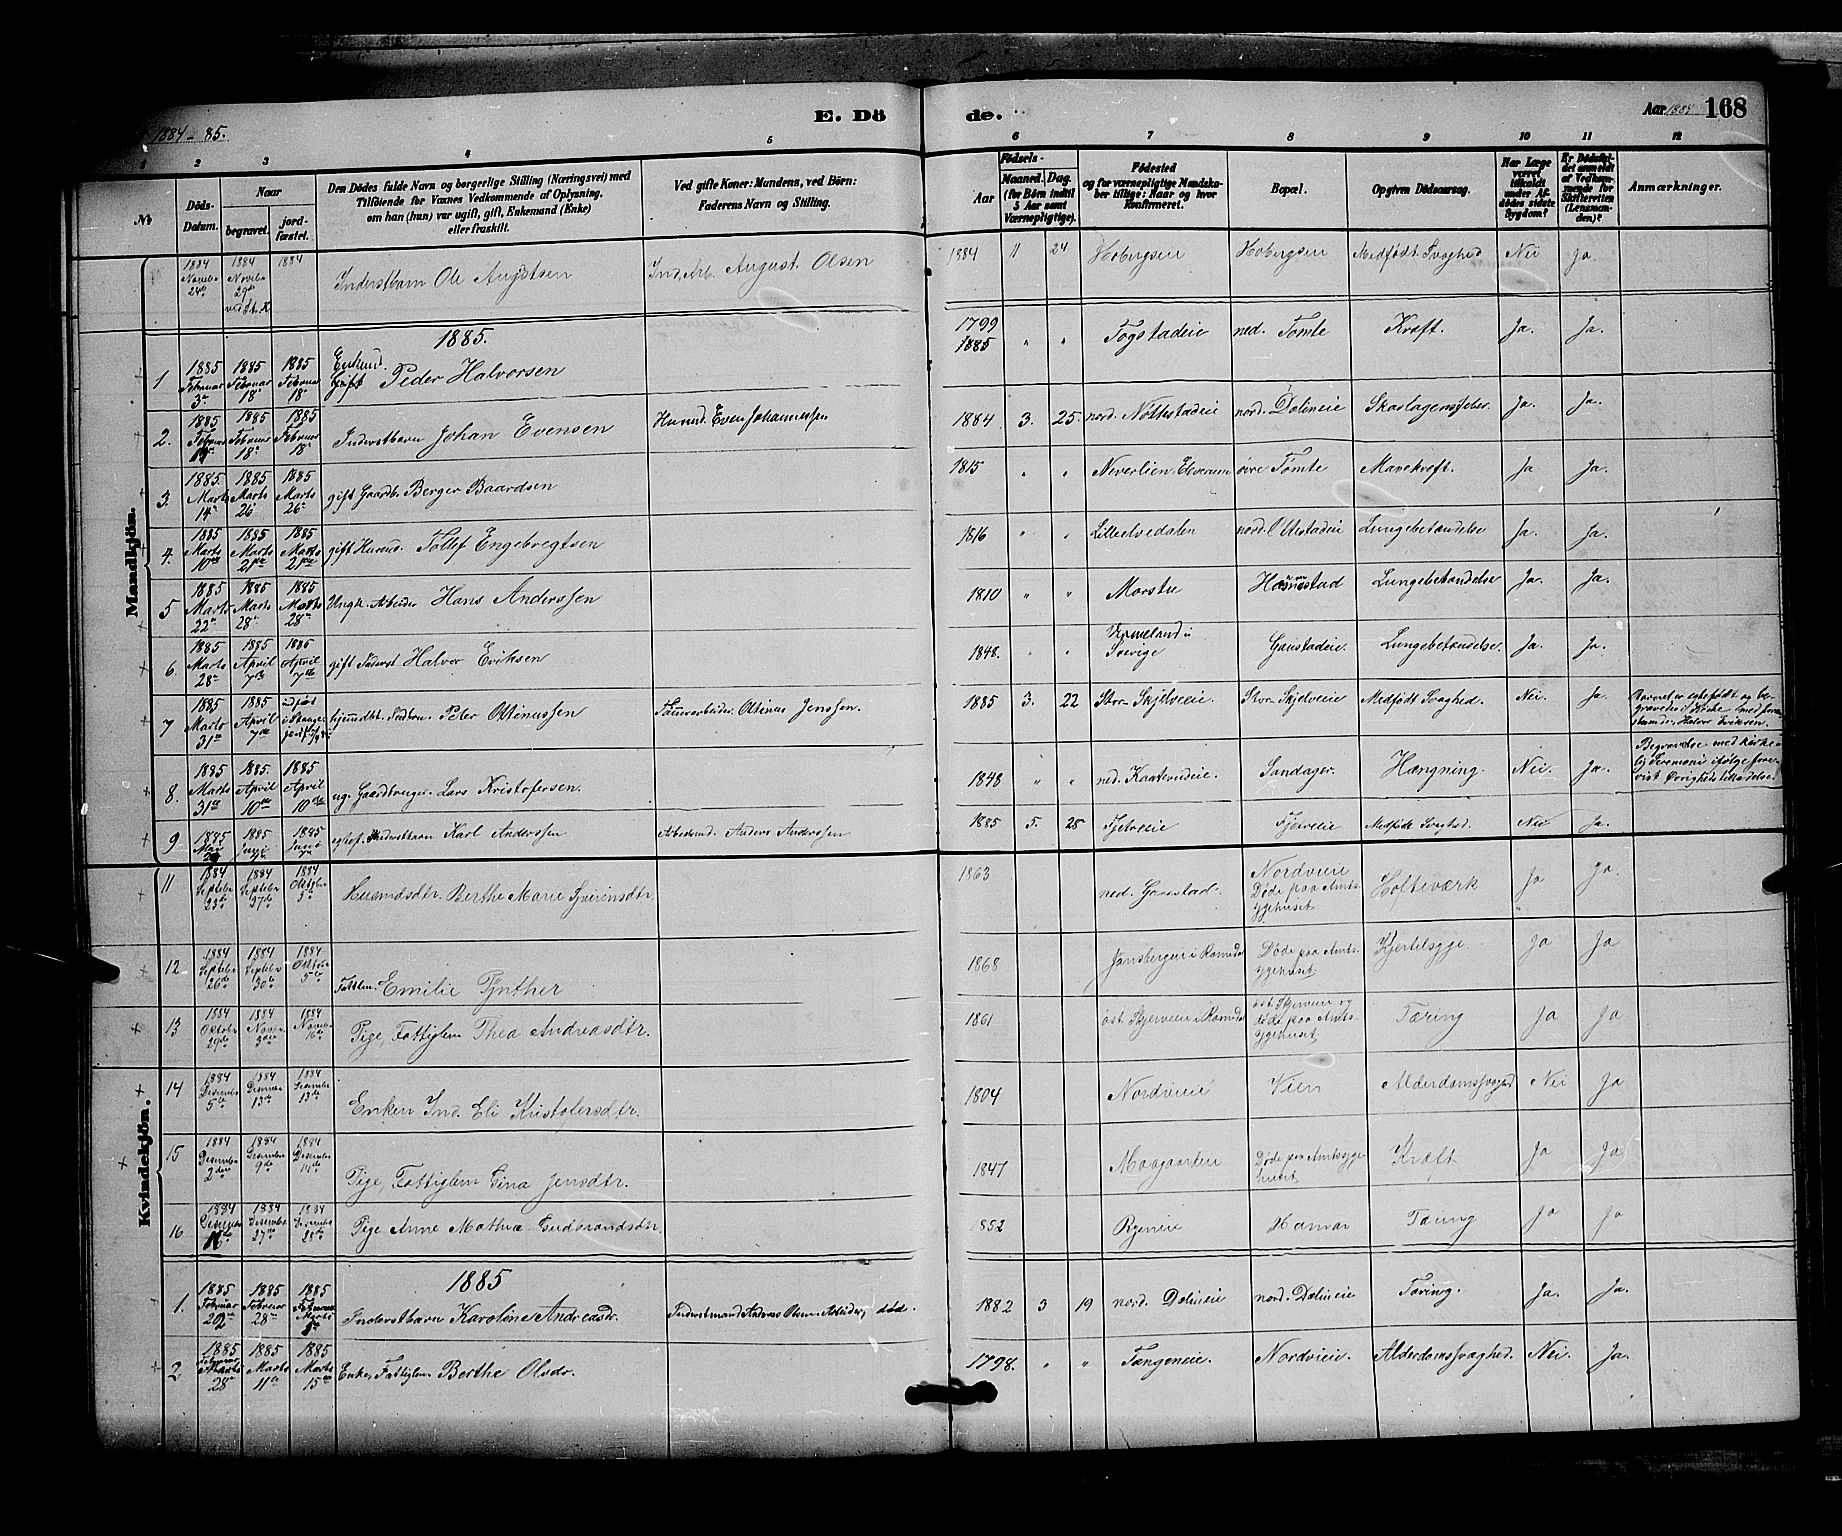 1884-85.
E. Dö de.
Aar 1884 168
1 2 3 4 5 6 7 8 9 10 11 12
No
Döds-Datum.
Naar
begravet.
jordfæstet.
Den Dödes fulde Navn og borgerlige Stilling (Næringsvei) med
Tilföiende for Voxnes Vedkommende af Oplysning,
om han (hun) var ugift, gift, Enkemand (Enke)
eller fraskilt.
Ved gifte Koner: Mandens, ved Börn:
Faderens Navn og Stilling.
Födsels-
Aar
Maaned. Dag.
(for Börn indtil 5 Aar samt Værnepligtige).
Födested
og for værnepligtige Mandskaber tillige: Naar og hvor konfirmeret.
Bopæl.
Opgiven Dödsaarsag.
Har Læge været tilkaldt under Afdödes sidste Sygdom?
Er Dödsfaldet anmeldt af Vedkommende for Skifteretten (Lensmanden)?
Anmærkninger.
Mandkjön.
1884 Novebr 24de 1884 Novebr 29de 1884 Inderstbarn Ole Augstsen Ind. Arb. August Olsen 1884 11 24 Hobergseie Hobergseie Medfødt Svaghed Nei Ja
1885.
1 1885 Februar 3de 1885 Februar 18 1885 Februar 18 Gift Peder Halvorsen 1799 1885 " " Fogstadeie ned. Tomte Kræft. Ja. Ja.
2. 1885 Februar 1885 Februar 18 1885 Februar 18 Inderstbarn Johan Evensen Husmd. Even Johannessen 1884 3. 25. nord. Nøttestadeie nord. Dolineie Skarlagensfeber. Ja. Ja.
3. 1885 Marts 14de 1885 Marts 26 1885 Marts 26 gift Gaardb. Berger Baardsen 1815 " " Neverlien Elverum øvre Tømte Mavekræft. Ja Ja.
4. 1885 Marts 1885 Marts 21de 1885 Marts 21de gift Husmd. Tollef Engebregtsen 1816 " " Lilleelvedalen nord. Ottestadeie Lungebetændelse Ja. Ja.
5 1885 Marts 22de 1885 Marts 28de 1885 Marts 28de Ungk. Arbeider Hans Anderssen 1810 " " Morstu Lungebetændelse Ja. Ja.
6 1885 Marts 28de 1885 April 7de 1885 April 7de gift Inderst Halvor Eriksen 1848. " " Vermeland i Sverige Gaustadeie. Lungebetændelse. Ja. Ja.
7 1885 Marts 31te 1885 April 7de Peter Ottinussen Ottinus Jenssen. 1885 3. 22 Stor-Skjelveeie. Stor-Skjelveeie Medfødt Svaghed. Nei. Ja.
8. 1885 Marts 31te 1885. April 10de 1885 April 10de ug. Gaardbruger Lars Kristofersen. 1848 " " ned. Kaatorudeie. Sandager. Hængning. Nei. Ja. Begravelse med kirkelig Ceremoni ifølge forevist Øvrigheds Tilladelse.
9 1885 Mai 1885 Juni 1885 Juni Inderstbarn Karl Anderssen Arbeidsmd. Anders Anderssen 1885 5. 25 Fjelveeie Fjelveeie Medfødt Svaghed. Nei Ja.
Kvindekjön.
11 1884 Septebr 23de 1884 Septebr 27de 1884 Oktobr 5te Husmdsdtr. Berthe Marie 1863 ned. Gaustad. Nordvieie Døde paa Amtssygehuset Hofteværk Ja Ja.
12 1884 Septebr 26de 1884 Septebr 30te 1884 Oktobr 5te Fattlem. Emilie Tynther 1868 i Romedal Døde paa Amtssygehuset Kjertelsyge Ja Ja
13 1884 Oktobr 29de 1884 Novbr. 3die 1884 Novebr. 16de Pige, Fattiglem Thea Andreasdtr. 1861 øst. Skjerveeie i Romedal øst. Skjerveeie og døde paa Amtssygehuset Tæring Ja Ja
14 1884 Desember 5te 1884 Desembr 13de 1884 Desembr 13de Enken Ind. Eli Kristofersdtr. 1804 Nordvieie Vien Alderdomssvaghed Nei Ja
15 1884 Desember 2den 1884 Desembr 9de 1884 Desembr 14de Pige, Fattiglem Gina Jensdtr. 1847 Maagaarden Døde paa Amtssygehuset Kræft Ja Ja
16 1884 Desembr 1884 Desember 27de 1884 Desembr 28de Pige Anne Mathea Gudbrandsdtr. 1852 Ryeneie Hamar Tæring Ja Ja
1885
1. 1885 Februar 1885 Februar 28de 1885 Marts Inderstbarn Karoline Andreasdr. Inderstmand Andreas Olsen, Arbeider, død. 1882 3 19 nord. Dolineie nord. Dolineie Tæring. Ja. Ja.
2 1885 Marts 28de 1885 Marts 11te 1885 Marts 15de Enke, Fattiglem Berthe Olsdr. 1798. " " Tangeneie. Nordvieie. Alderdomssvaghed. Nei. Ja.